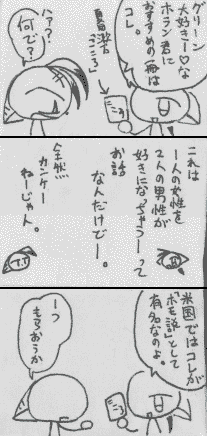 グリーン
大好きー♡な
ホラン君に
おすすめの一冊は
コレ。
夏漱
「こころ」
ハァ?
何で?
こころ
これは
1人の女性を
2人の男性が
好きになっちゃうーって
お話
なんだけどー。
全然
カンケー
ねーじゃん。
米国ではコレが
「ホモ説」として
有名なのよ。
こころ
一つ
もらおうか